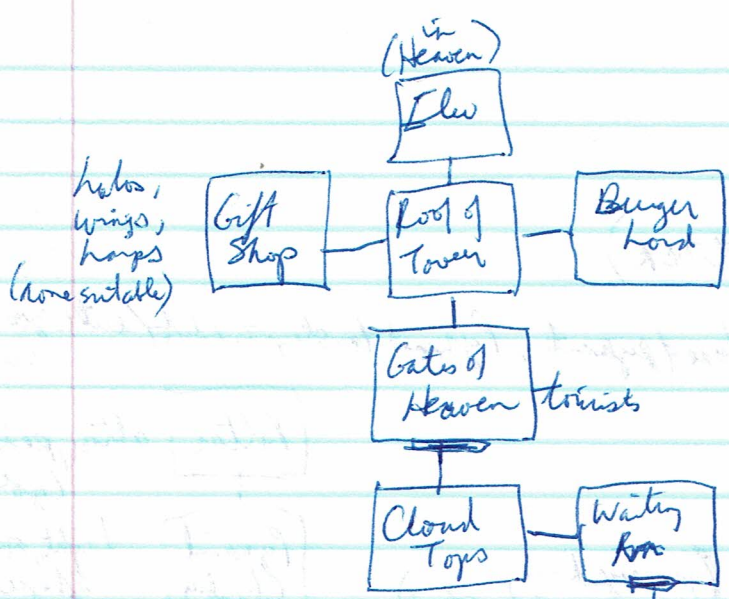 in
(Heaven)
halos,
wings,
harps
(none suitable)
Gift
Shop
Roof of
Tower
Burger
Lord
Gates of
Heaven
tourists
Cloud
Tops
Waiting